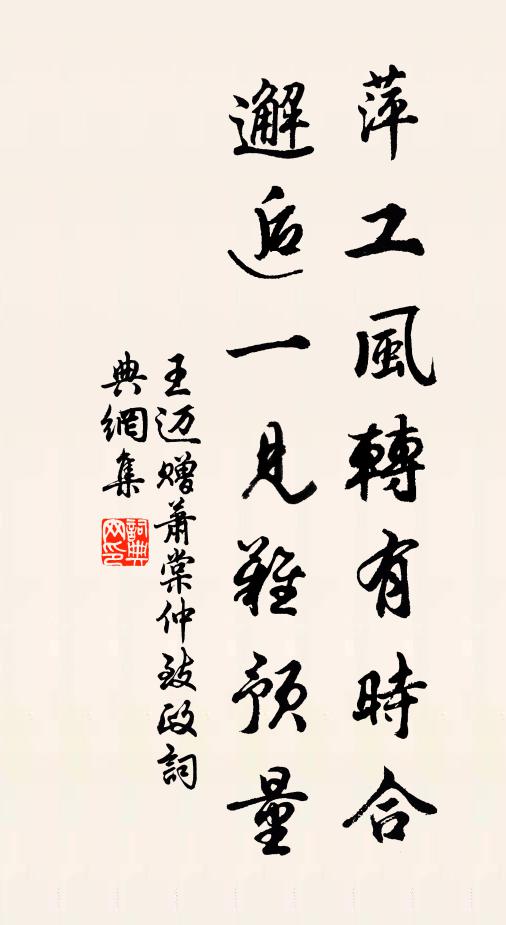 萍工風轉有時合
邂逅一見難預量
王迈赠萧棠仲致政詞
典網集
詞典网印